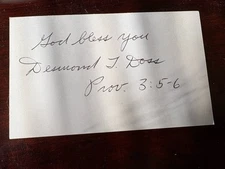 God bless you
Desmond T. Doss
Prov. 3:5-6